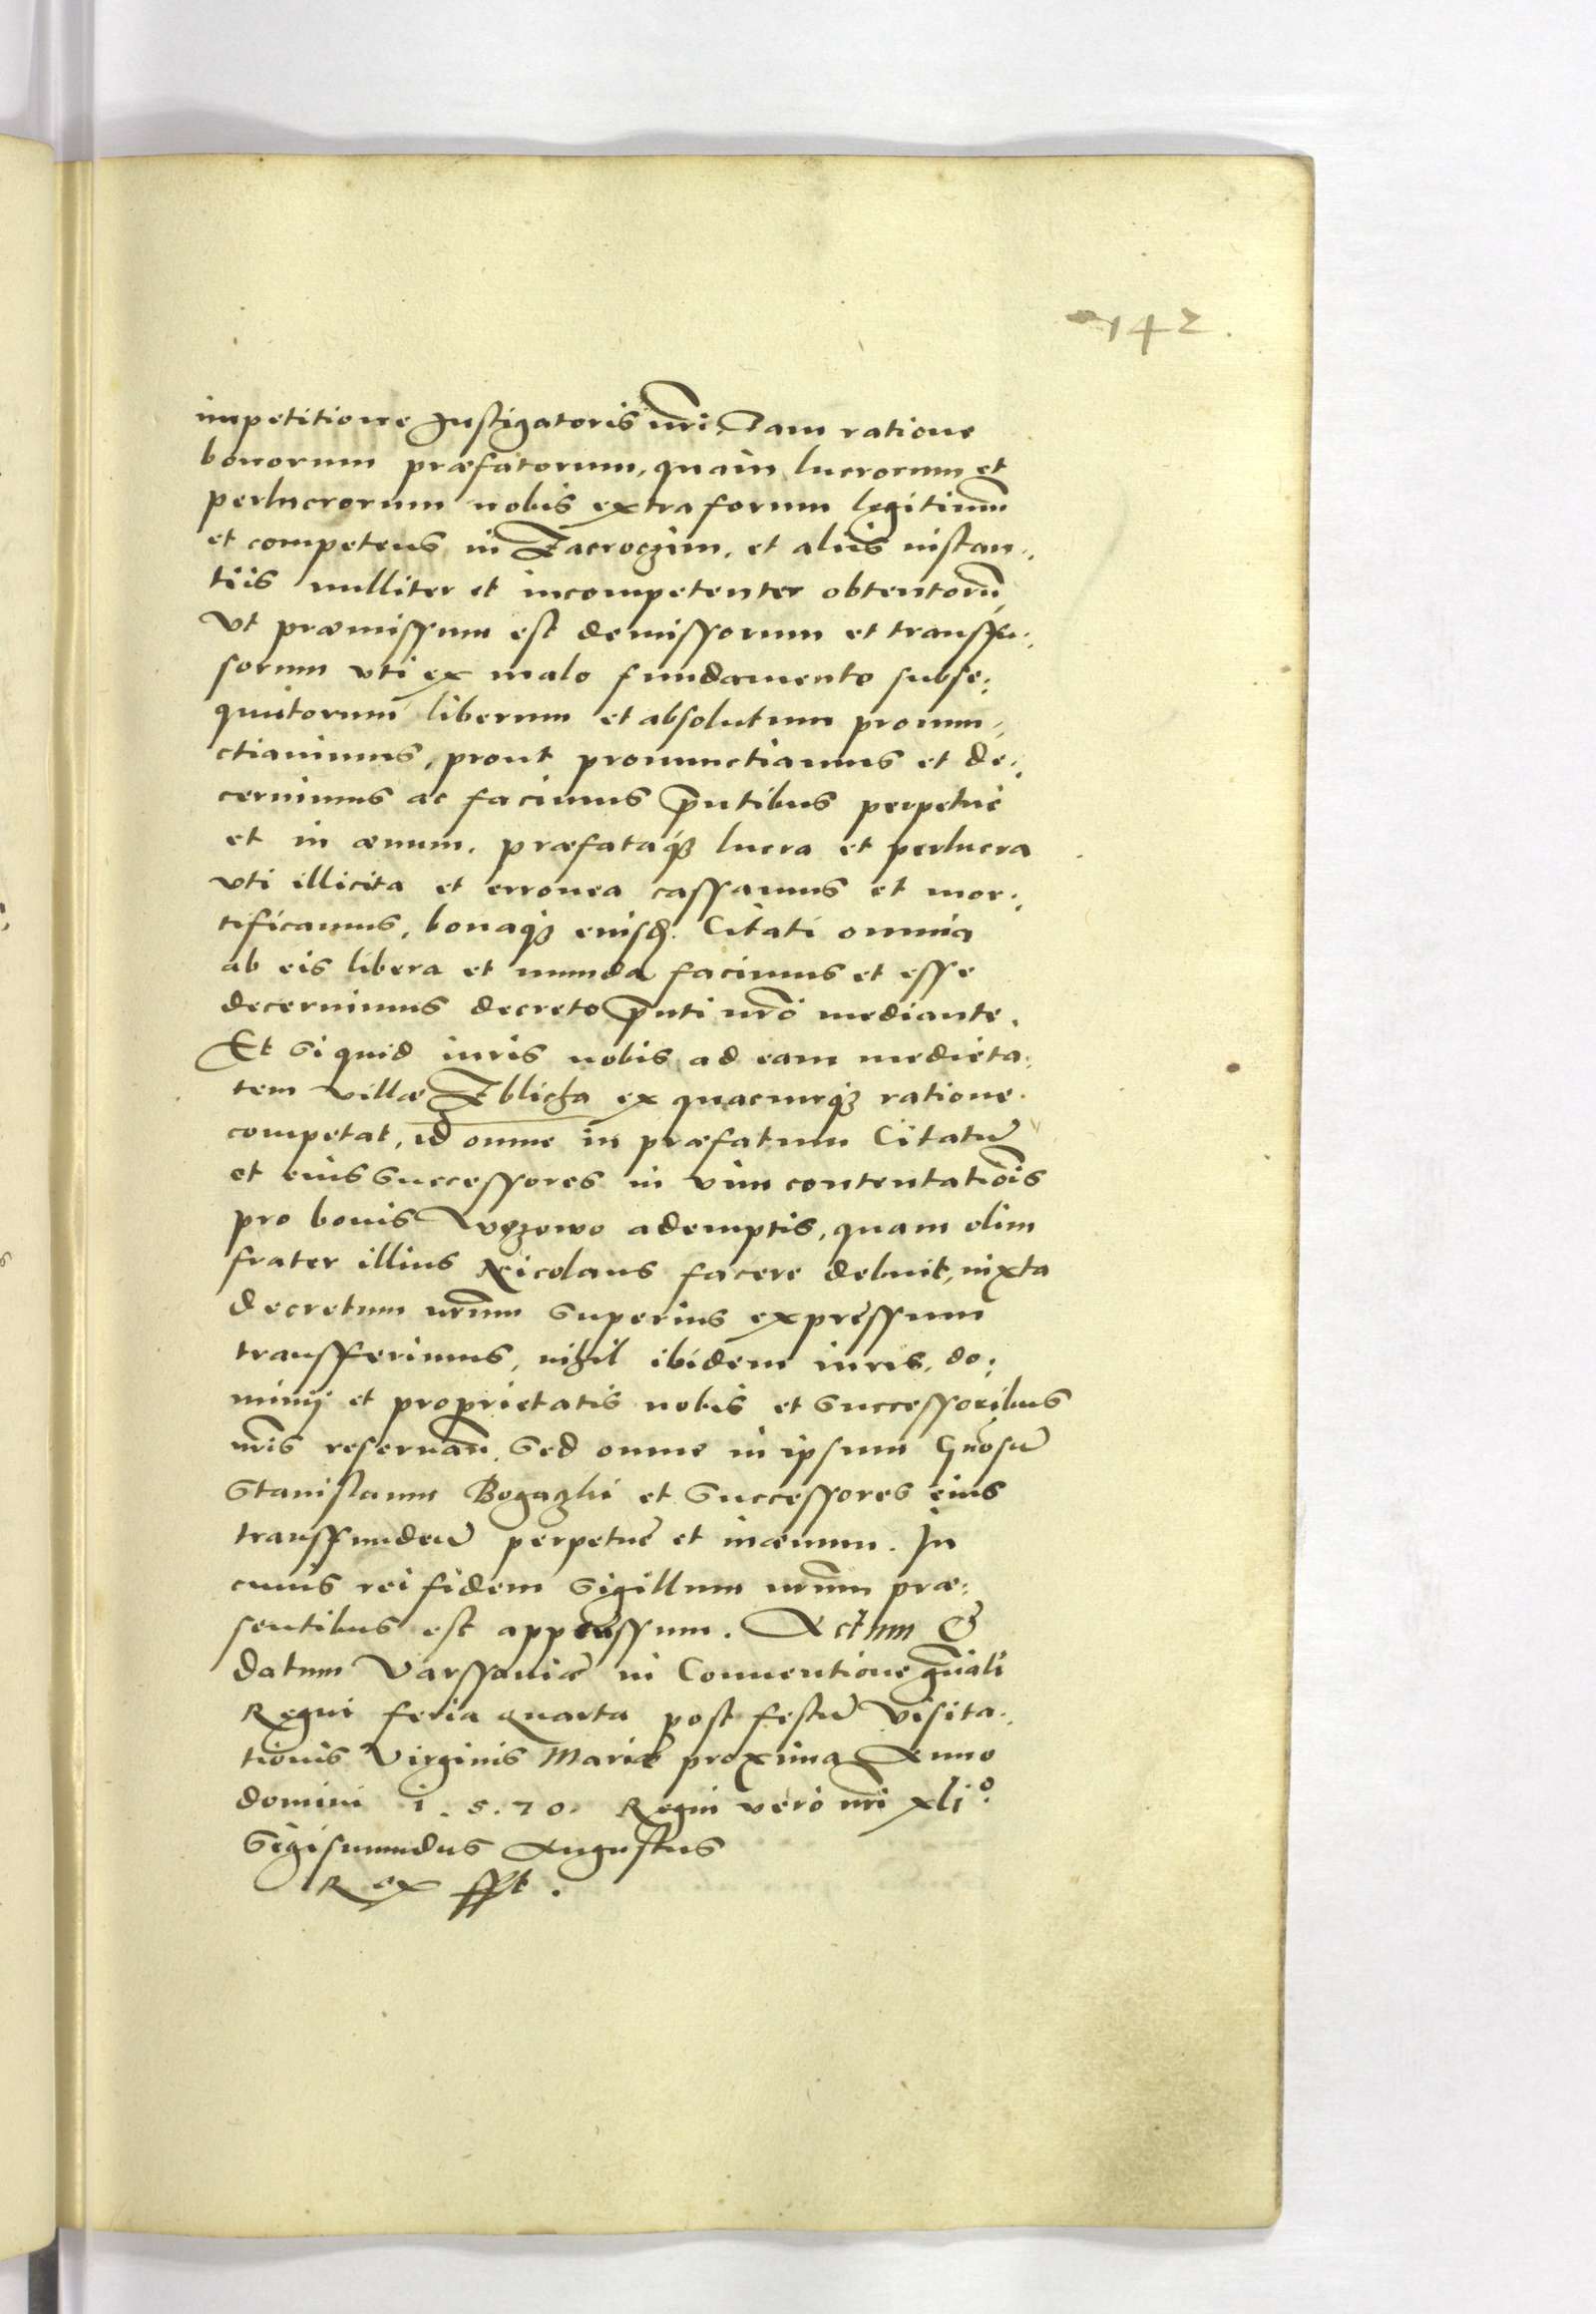 142.
impetitione Instigatoris nri, Tam ratione
bonorum præfatorum, quam lucrorum et
perlucrorum nobis extra forum legitimũ
et competens in Zacroczim, et aliis instan:
tiis nulliter et incompetenter obtentorũ,
vt præmissum est demissorum et transfu:
sorum vti ex malo fundamento subse:
quutorum liberum et absolutum pronun:
ctiavimus, prout pronunctiamus et de:
cernimus ac facimus p̃ntibus perpetue
et in ævum. præfataqȝ lucra et perlucra
vti illicita et erronea cassamus et mor:
tificamus, bonaqȝ eiusd. Citati omnia
ab eis libera et munda facimus et esse
decernimus decreto p̃nti nrõ mediante.
Et si quid iuris nobis ad eam medieta:
tem villæ Zblicha ex quacunqȝ ratione
competat, id omne in præfatum Citatũ
et eius successores in vim contentatiõis
pro bonis Wezewo ademptis, quam olim
frater illius Nicolaus facere debuit, iuxta
decretum nrũm superius expressum
transfferimus, nihil ibidem iuris, do:
minij et proprietatis nobis et successoribus
nr̃is reseruan̄. sed omne in ipsum Gn̄osũ
Stanislaum Bogaczki et successores eius
transfundeñ perpetue et in ævum. In
cuius rei fidem Sigillum nrũm præ:
sentibus est appressum. Actum &
datum Varssaviæ in Conuentione gñali
Regni feria quarta post festũ Visita:
tionis Virginis Mariæ proxima Anno
domini 1.5.70. Regni vero nri xljº.
Sigismundus Augustus
Rex sst.